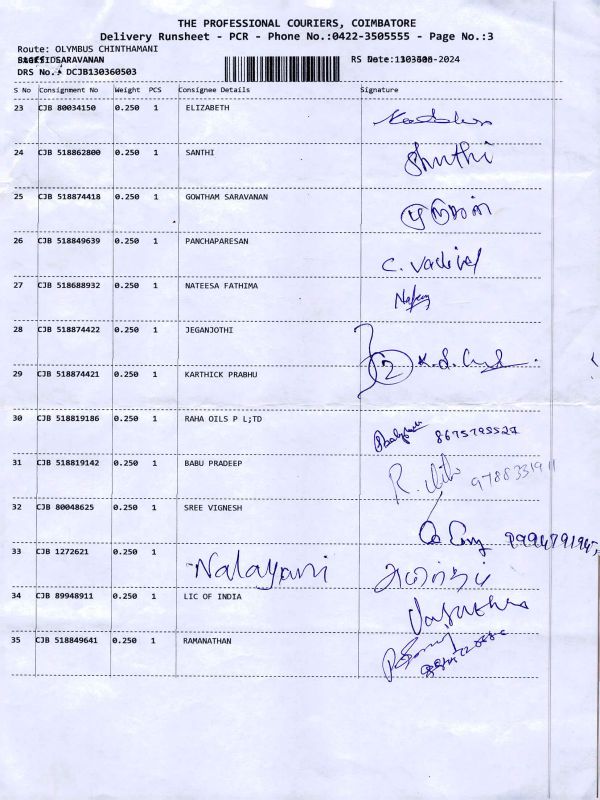 THE PROFESSIONAL COURIERS, COIMBATORE
Delivery Runsheet - PCR - Phone No.:0422-3505555 - Page No.:3
Route: OLYMBUS CHINTHAMANI
SARAVANAN RS Date: -2024
DRS No.: DCJB130360503
S No Consignment No Weight PCS Consignee Details Signature
23 CJB 80034150 0.250 1 ELIZABETH
24 CJB 518862800 0.250 1 SANTHI Shuthi
25 CJB 518874418 0.250 1 GOWTHAM SARAVANAN
26 CJB 518849639 0.250 1 PANCHAPARESAN C. Vadivel
27 CJB 518688932 0.250 1 NATEESA FATHIMA
28 CJB 518874422 0.250 1 JEGANJOTHI
2
29 CJB 518874421 0.250 1 KARTHICK PRABHU
30 CJB 518819186 0.250 1 RAHA OILS P L;TD
8675795527
31 CJB 518819142 0.250 1 BABU PRADEEP
9788331911
32 CJB 80048625 0.250 1 SREE VIGNESH
33 CJB 1272621 0.250 1 Nalayani
34 CJB 89948911 0.250 1 LIC OF INDIA
35 CJB 518849641 0.250 1 RAMANATHAN